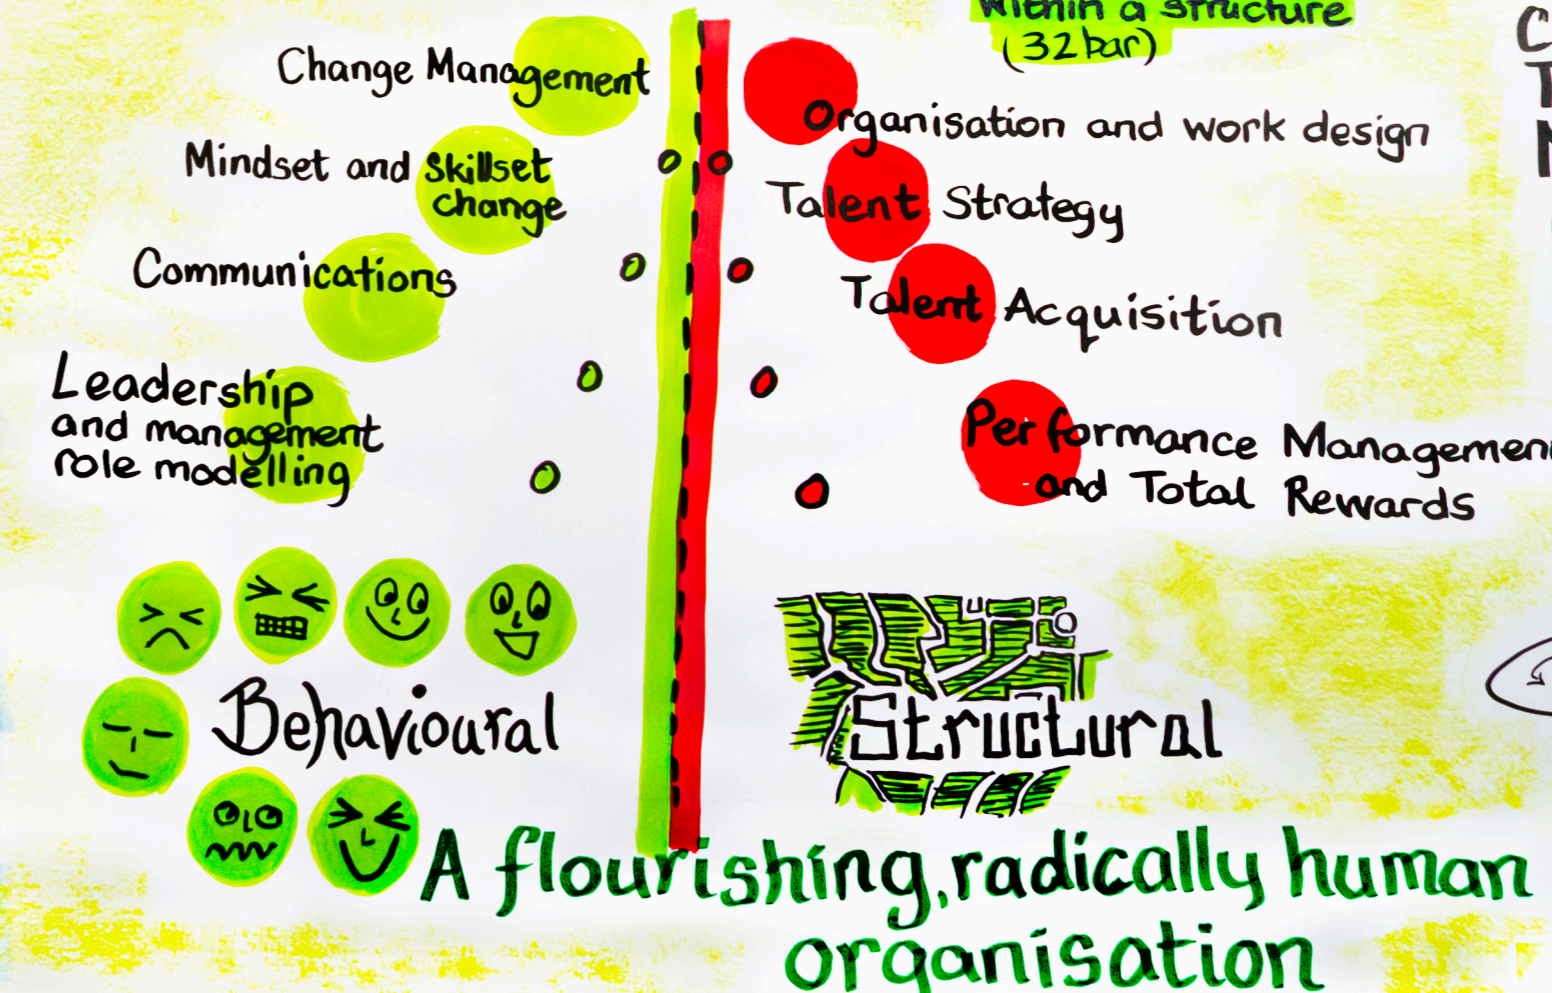 within a structure
(32 bar)
Change Management
Mindset and Skillset
change
Communications
Leadership
and management
role modelling
Organisation and work design
Talent Strategy
Talent Acquisition
Performance Managemen
and Total Rewards
Behavioural
Structural
A flourishing, radically human
organisation